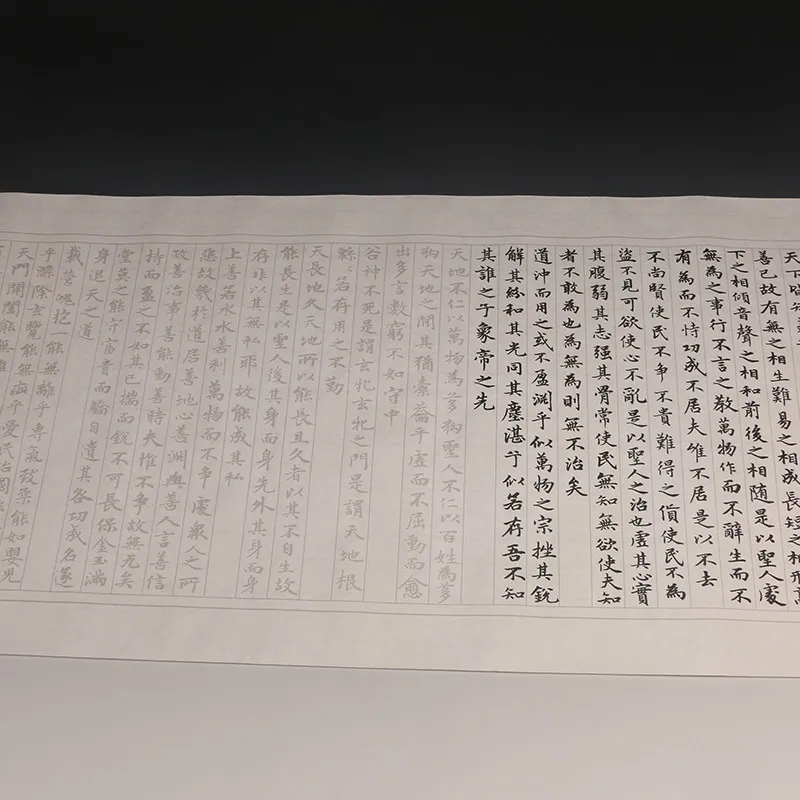 天下皆知
善已故有無之相生難易之相成長短之相形高
下之相傾音聲之相和前後之相随是以聖人處
無為之事行不言之教萬物作而不辭生而不
有為而不恃功成不居夫惟不居是以不去
不尚賢使民不争不貴難得之貨使民不為
盜不見可欲使心不亂是以聖人之治也虛其心實
其腹弱其志强其骨常使民無知無欲使夫知
者不敢為也為無為則無不治矣
道沖而用之或不盈渊乎似萬物之宗挫其銳
解其紛和其光同其塵湛兮似若存吾不知
其誰之子象帝之先
天地不仁以萬物為芻狗聖人不仁以百姓為芻
狗天地之間其猶橐籥乎虛而不屈動而愈
出多言數窮不如守中
谷神不死是謂玄牝玄牝之門是謂天地根
緜緜若存用之不勤
天長地久天地所以能長且久者以其不自生故
能長生是以聖人後其身而身先外其身而身
存非以其無私耶故能成其私
上善若水水善利萬物而不争處衆人之所
惡故幾於道居善地心善渊與善人言善信
政善治事善能動善時夫惟不争故無尤矣
持而盈之不如其已揣而銳不可長保金玉滿
堂莫之能守富貴而驕自遺其咎功成名遂
身退天之道
載營魄抱一能無離乎專氣致柔能如嬰兒
乎滌除玄覽能無疵乎愛民治國能
天門開闔能無雌